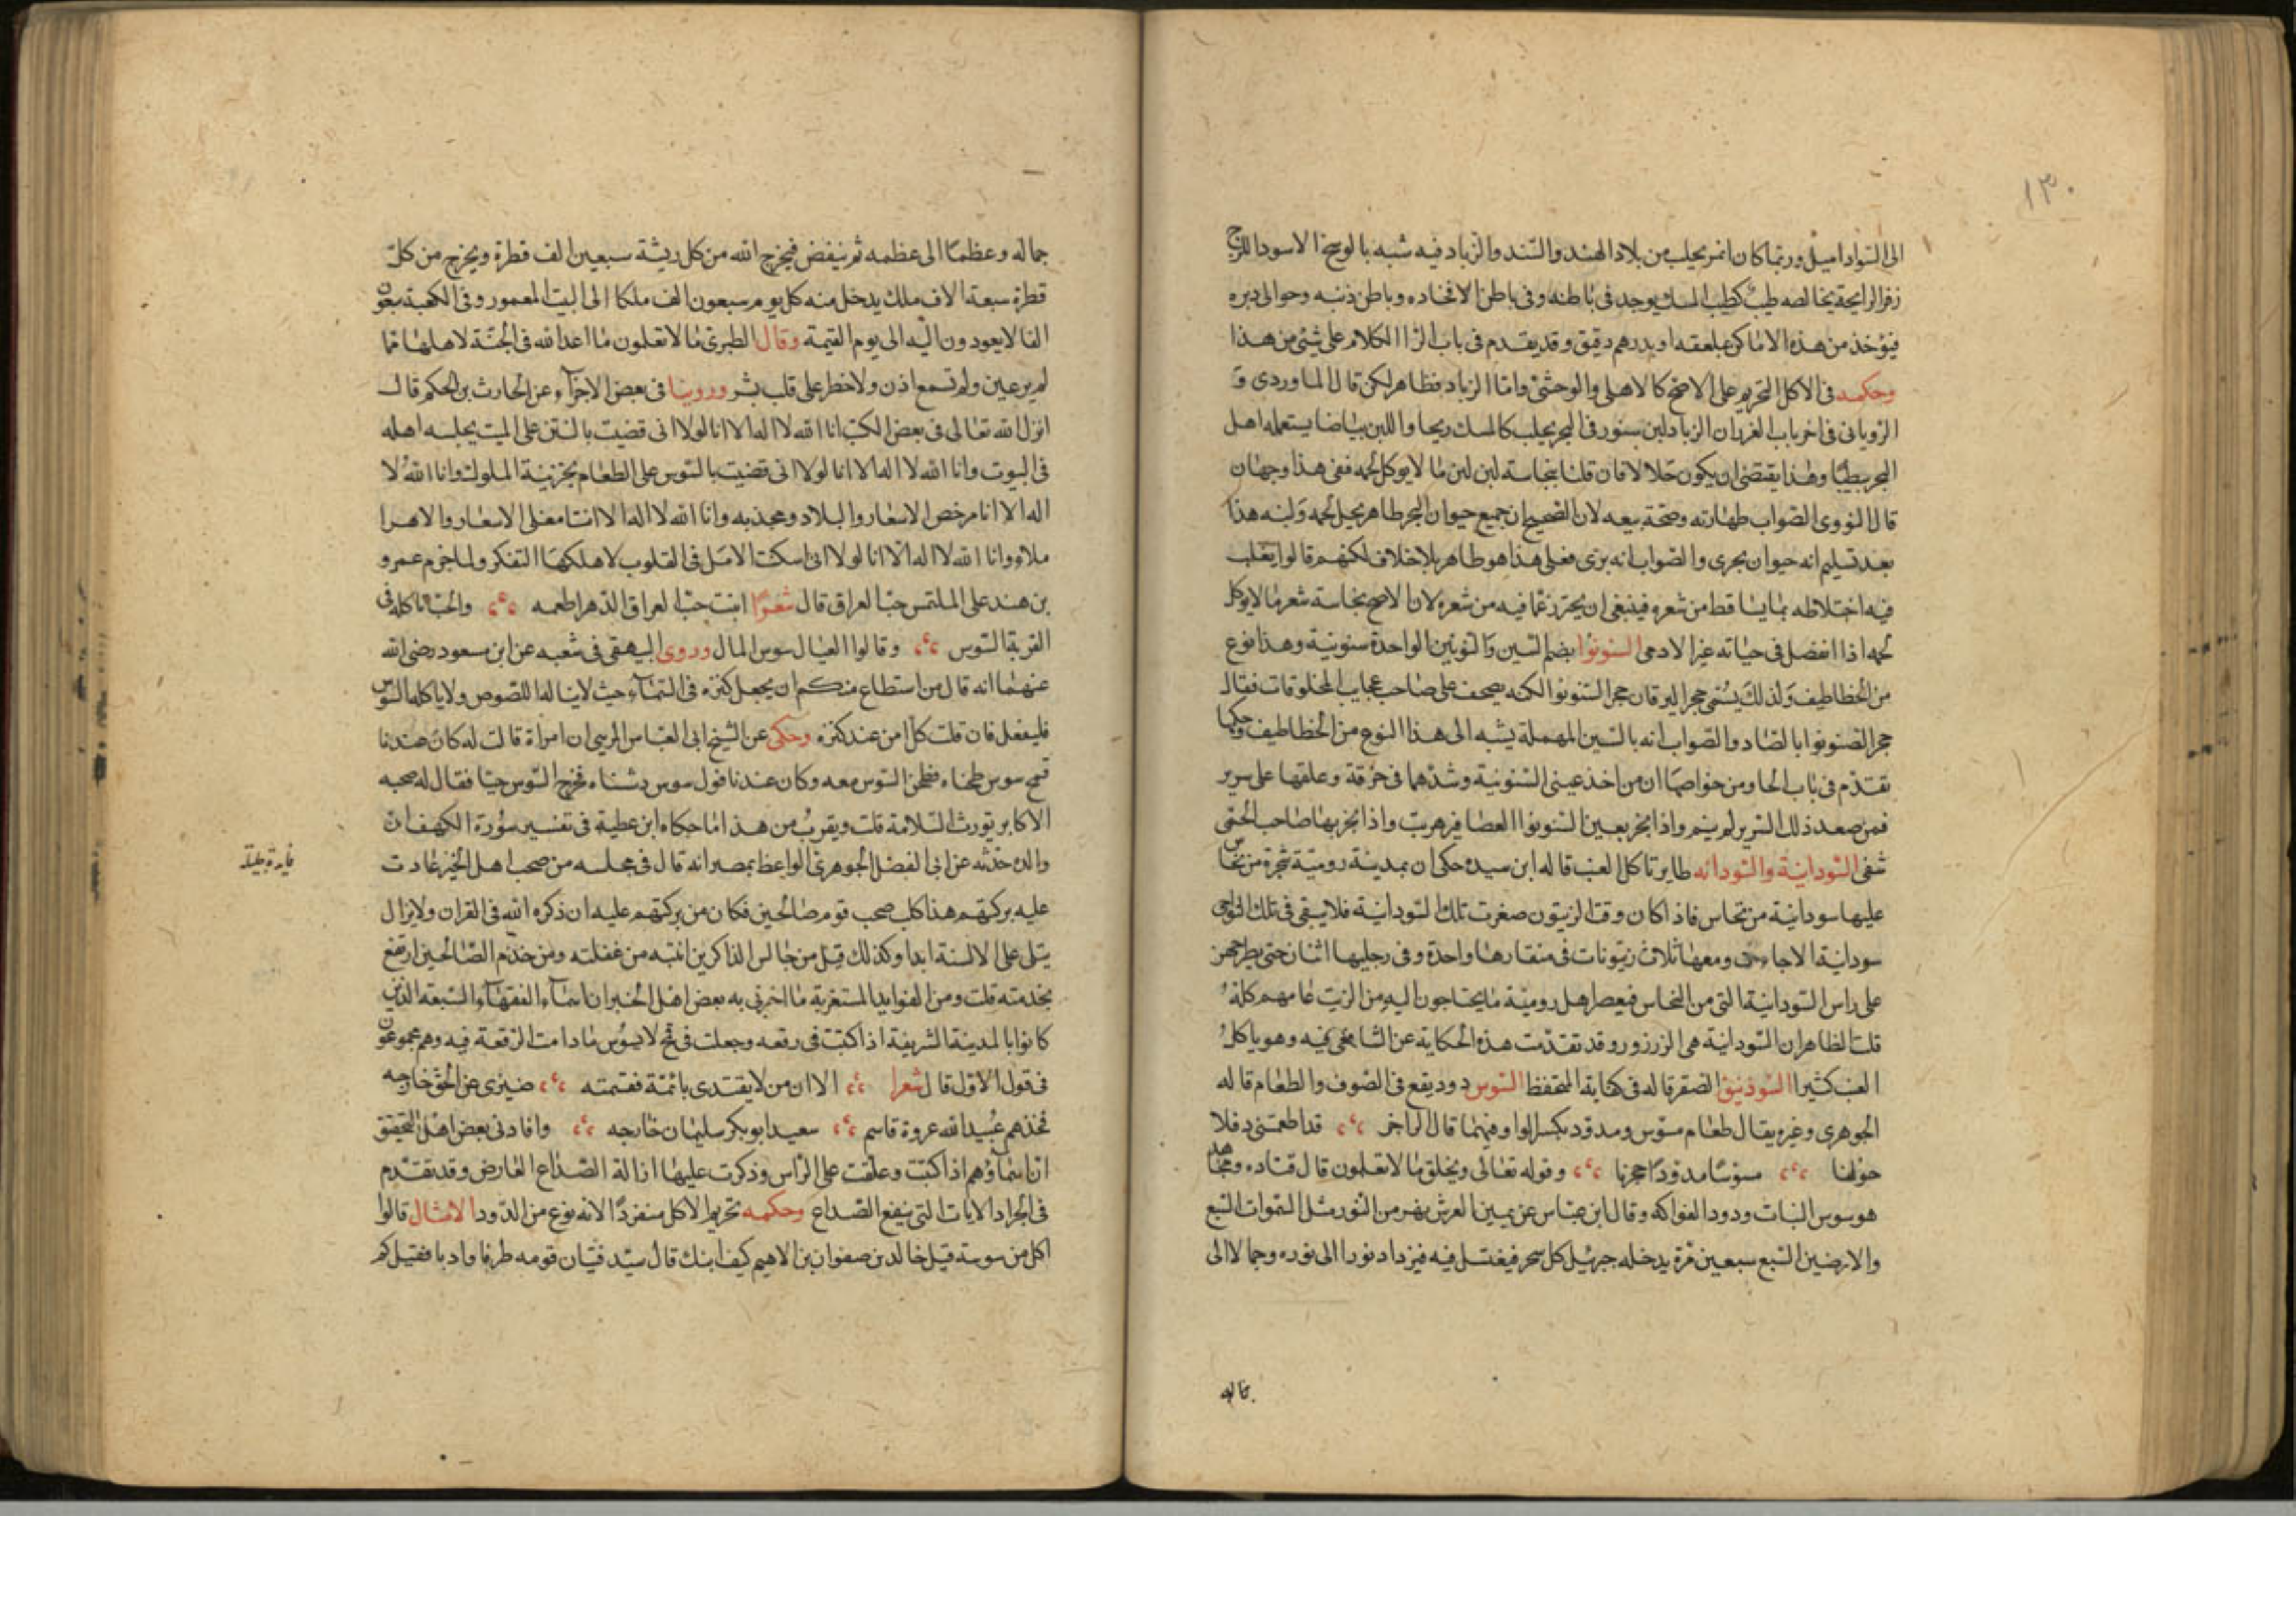 ١٣٠
الى السواد اميل وربما كان انمر يجلب من بلاد الهند والسند والزباد فيه شبه بالوسخ الاسود اللزج
زفر الرايحة يخالصه طيب كطيب المسك يوجد في باطنه وفي باطن الافخاده وباطن ذنبه وحوالى دبره
فيؤخذ من هذه الاماكن بملعقه او بدرهم دقيق وقد يقدم في باب الزا الكلام على شئ من هذا
وحكمه في الاكل التحريم على الاصح كالاهلى والوحشئ واما الزباد فظاهر لكن قال الماوردى و
الرويانى في اخر باب الغرر ان الزباد لبن سنور في البحر يجلب كالمسك ريحا واللبن بياضا يستعمله اهل
البحر بطيبا وهذا يقتضى ان يكون حلالا فان قلنا بنجاسة لبن لبن ما لا يوكل لحمه ففى هذا وجهان
قال النووى الصواب طهارته وصحة بيعه لان الصحيح ان جميع حيوان البحر طاهر يحل لحمه ولبنه هذا
بعد تسليم انه حيوان بحرى والصواب انه برى فعلى هذا هو طاهر بلا خلاف لكنهم قالوا يغلب
فيه اختلاطه بما يساقط من شعره فينبغى ان يحترز عما فيه من شعره لان الاصح نجاسة شعر ما لا يوكل
لحمه اذا انفصل في حياته غير الادمى السنونوا بضم السين والنونين الواحدة سنونية وهذا نوع
من الخطاطيف ولذلك يسمى حجر اليرقان حجر السنونوا لكنه تصحف على صاحب عجايب المخلوقات فقال
حجر الصنونوا بالصاد والصواب انه بالسين المهملة يشبه الى هذا النوع من الخطاطيف وحكمها
تقدم في باب الحا ومن خواصها ان من اخذ عينى السنونية وشدهما في خرقة وعلقها على سرير
فمن صعد ذلك السرير لم ينم واذا بخر بعين السنونوا العصافير هربت واذا بخر بها صاحب الحمى
شفى السودانية والسودانه طاير تاكل العنب قاله ابن سيده حكى ان بمدينة رومية شجرة من نحاس
عليها سودانية من نحاس فاذا كان وقت الزيتون صغرت تلك السودانية فلا يبقى في تلك النواحى
سودانية الا جاءت ومعها ثلاث زيتونات في منقارها واحدة وفي رجليها اثنان حتى يطرحهن
على راس السودانية التى من النحاس فيعصر اهل رومية ما يحتاجون اليه من الزيت عامهم كله
قلت الظاهر ان السودانية هى الزرزور وقد تقدمت هذه الحكاية عن الشافعى فيه وهو ياكل
العنب كثيرا السوذنيق الصقر قاله في كفاية المتحفظ السوس دود يقع في الصوف والطعام قاله
الجوهرى وغيره يقال طعام مسوس ومدود بكسر الواو فيهما قال الراجز قد اطعمتنى دقلا
حوليا مسوسا مدودا حجريا وقوله تعالى ويخلق ما لا تعلمون قال قتاده ومجاهد
هو سوس النبات ودود الفواكه وقال ابن عباس عن يمين العرش نهر من النور مثل السموات السبع
والارضين السبع سبعين مرة يدخله جبرئيل كل سحر فيغتسل فيه فيزداد نورا الى نوره وجمالا الى
جماله
جماله وعظما الى عظمه ثم ينفض فيخرج الله من كل ريشة سبعين الف قطرة ويخرج من كل
قطرة سبعة الاف ملك يدخل منه كل يوم سبعون الف ملكا الى البيت المعمور وفي الكعبة سبعون
الفا لا يعودون اليه الى يوم القيمة وقال الطبرى ما لا تعلمون ما اعد الله في الجنة لاهلها مما
لم ير عين ولم تسمع اذن ولا خطر على قلب بشر وروينا في بعض الاجزآء عن الحارث بن الحكم قال
انزل الله تعالى في بعض الكتب انا الله لا اله الا انا لولا انى قضيت بالنتن على الميت يحلبسه اهله
في البيوت وانا الله لا اله الا انا لولا انى قضيت بالسوس على الطعام بخزنية الملوك وانا الله لا
اله الا انا مرخص الاسعار والبلاد ومجذبه وانا الله لا اله الا انا مغلى الاسعار والاهرا
ملاء وانا الله لا اله الا انا لولا انى اسكنت الامل في القلوب لاهلكها التفكر ولما خرم عمرو
بن هند على الملتمس حب العراق قال شعرا ابنت حب العراق الدهر اطعمه والحب ياكله في
القرية السوس وقالوا العيال سوس المال وروى البيهقى في شعبه عن ابن مسعود رضى الله
عنهما انه قال من استطاع منكم ان يجعل كنزه في السمآء حيث لا يناله اللصوص ولا ياكله السوس
فليفعل فان قلت كل امن عند كنزه وحكى عن الشيخ ابى العباس المرسى ان امراة قالت له كان عندنا
قمح سوس طحناه فطحن السوس معه وكان عندنا فول سوس دششناه فخرج السوس حيا فقال له صحبه
الاكابر تورث السلامة قلت ويقرب من هذا ما حكاه ابن عطية في تفسير سورة الكهف ان
والده حدثه عن ابى الفضل الجوهرى الواعظ بمصر انه قال في مجلسه من صحب اهل الخير عادت
عليه بركتهم هذا كلب صحب قوم صالحين فكان من بركتهم عليه ان ذكره الله في القران ولا يزال
يتلى على الالسنة ابدا وكذلك قيل من جالس الذاكرين انتبه من غفلته ومن خدم الصالحين ارتفع
بخدمته قلت ومن الفوايد المستغربة ما اخبرنى به بعض اهل الخير ان اسمآء الفقهآء السبعه الذين
كانوا بالمدينة الشريفة اذا كتبت في رقعه وجعلت في قمح لا يسوس ما دامت الرقعة فيه وهم مجموعون
في قول الاول قال شعرا الا ان من لا يقتدى بائمة فقسمته ضيزى عن الحق خارجه
فخذهم عبيد الله عروة قاسم سعيد ابو بكر سليمان خارجه وافادنى بعض اهل التحقيق
ان اسمآؤهم اذا كتبت وعلقت على الراس وذكرت عليها ازالة الصداع العارض وقد تقدم
في الجراد الايات التى ينفع الصداع وحكمه تحريم الاكل منفردا لانه نوع من الدود الامثال قالوا
اكل من سوسة قيل خالد بن صفوان بن الاهيم كيف ابنك قال سيد فتيان قومه ظرفا وادبا فقيل كم
فايدة جليلة